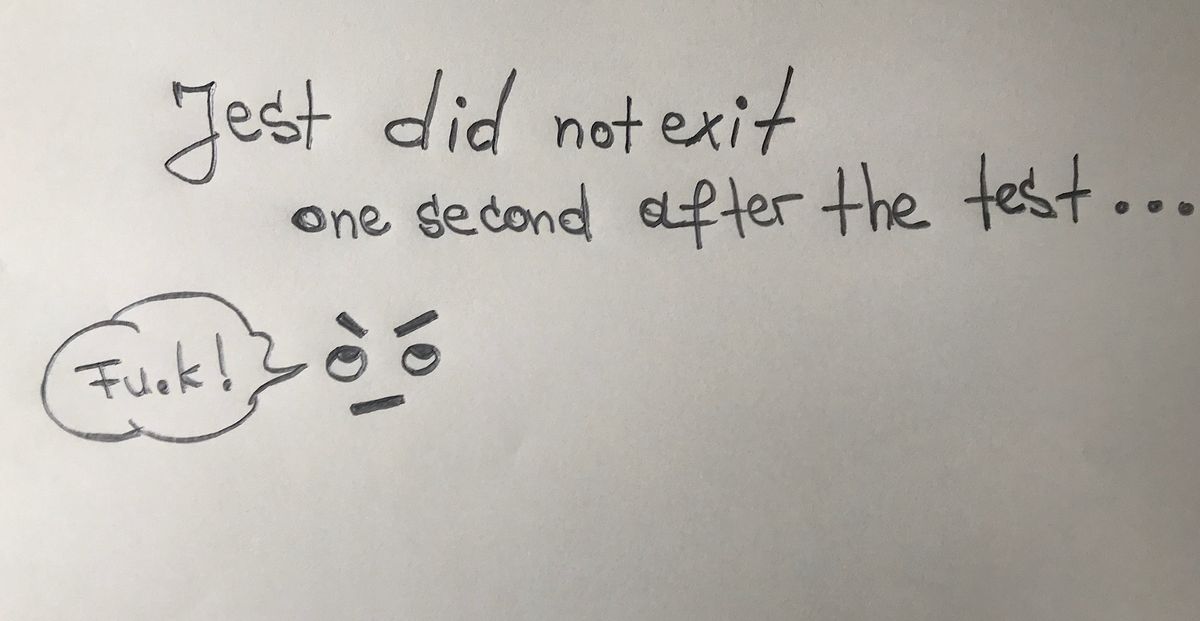 Jest did not exit
one second after the test...
Fu.k!